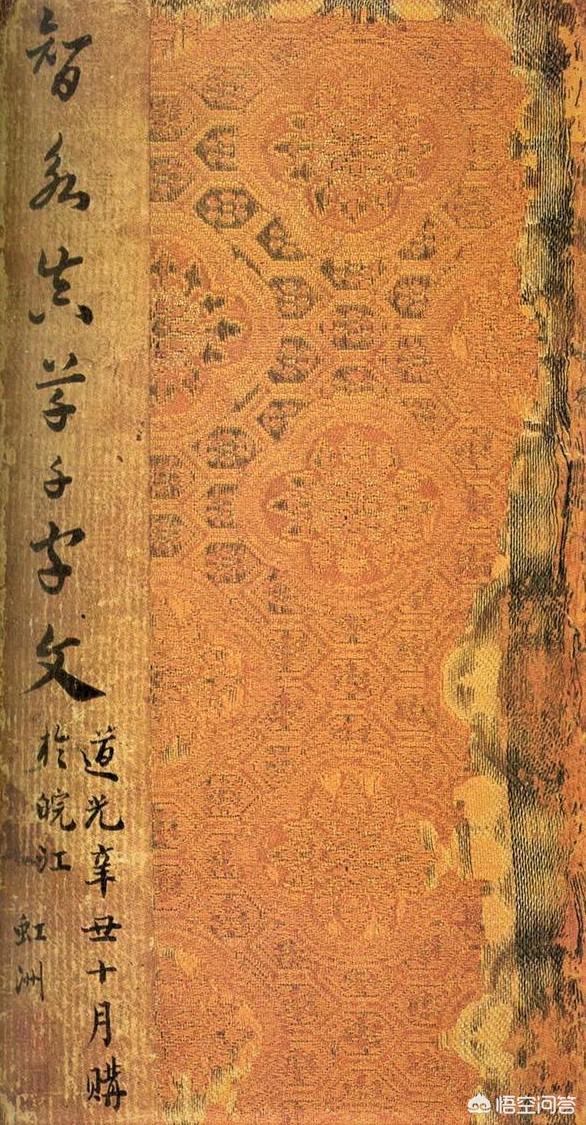 智永真草千字文
道光辛丑十月購
於皖江
虹洲
悟空问答